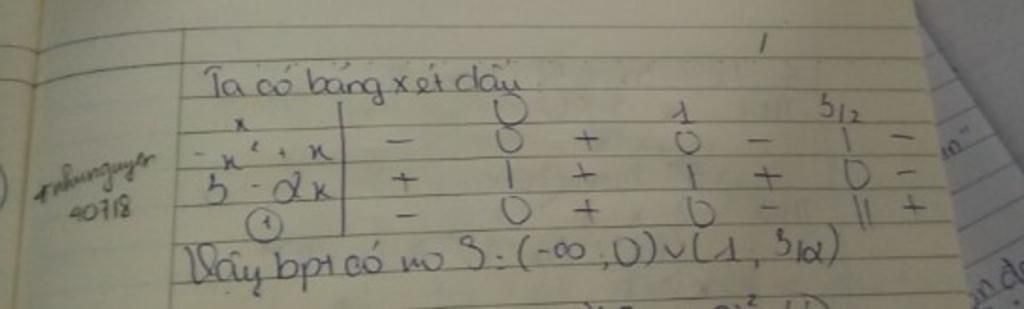 Ta có bảng xét dấu
x 0 1 5/2
-x² + x - 0 + 0 - | -
5 - 2x + | + | + 0 -
① - 0 + 0 - || +
Vậy bpt có no S = (-∞, 0) ∪ (1, 5/2)
nhunguyen
40718